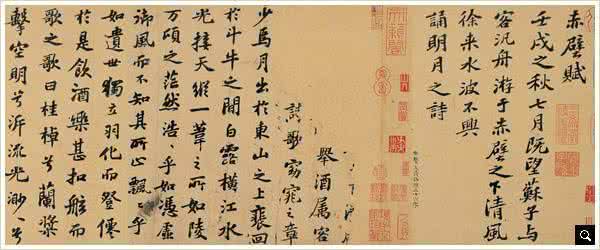 赤壁賦
壬戌之秋七月既望蘇子與
客汎舟游于赤壁之下清風
徐来水波不興
誦明月之詩
舉酒属客
歌窈窕之章
少焉月出於東山之上裵回
於斗牛之間白露橫江水
光接天縱一葦之所如陵
万頃之茫然浩〻乎如馮虛
御風而不知其所止飄〻乎
如遺世獨立羽化而登僊
於是飲酒樂甚扣舷而
歌之歌曰桂棹兮蘭槳
擊空明兮泝流光渺〻兮